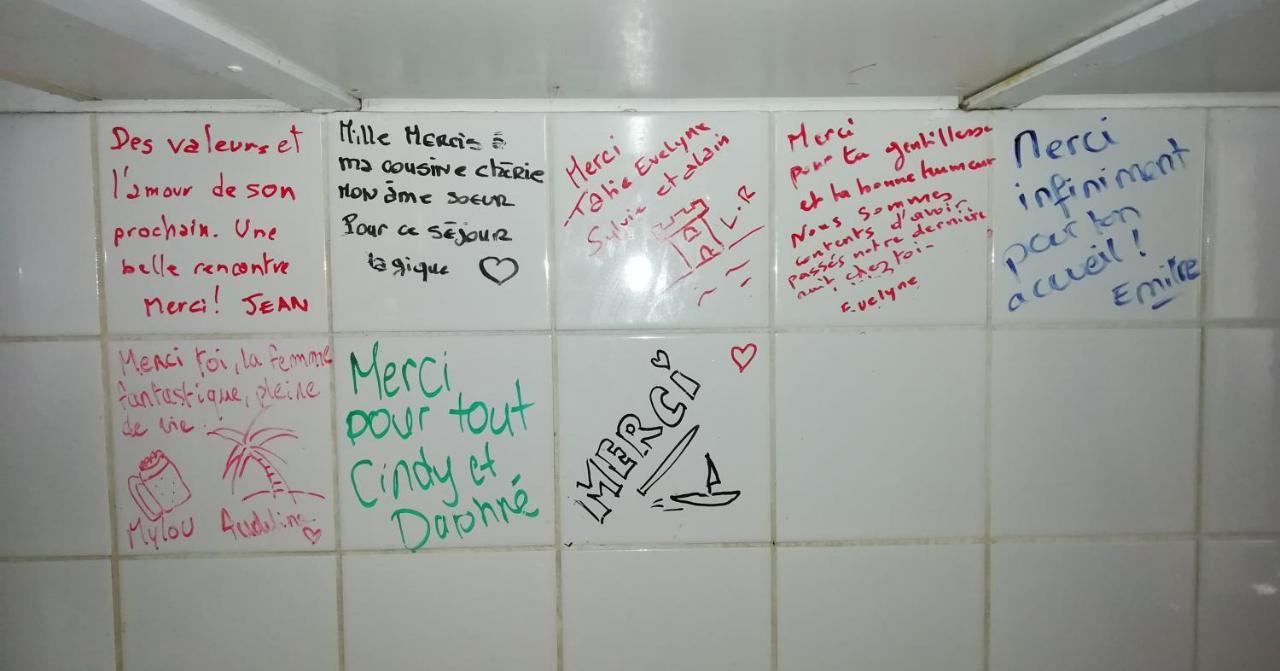 Des valeurs et
l'amour de son
prochain. Une
belle rencontre
Merci! JEAN
Mille Mercis à
ma cousine chérie
mon âme soeur
Pour ce séjour
Magique
Merci
Tatie Evelyne
Sylvie et alain
L.R
Merci
pour ta gentillesse
et ta bonne humeur
Nous sommes
contents d'avoir
passés notre dernière
nuit chez toi
Evelyne
Merci
infiniment
pour ton
accueil!
Merci toi, la femme
fantastique, pleine
de vie
Mylou
Merci
pour tout
Cindy et
MERCI